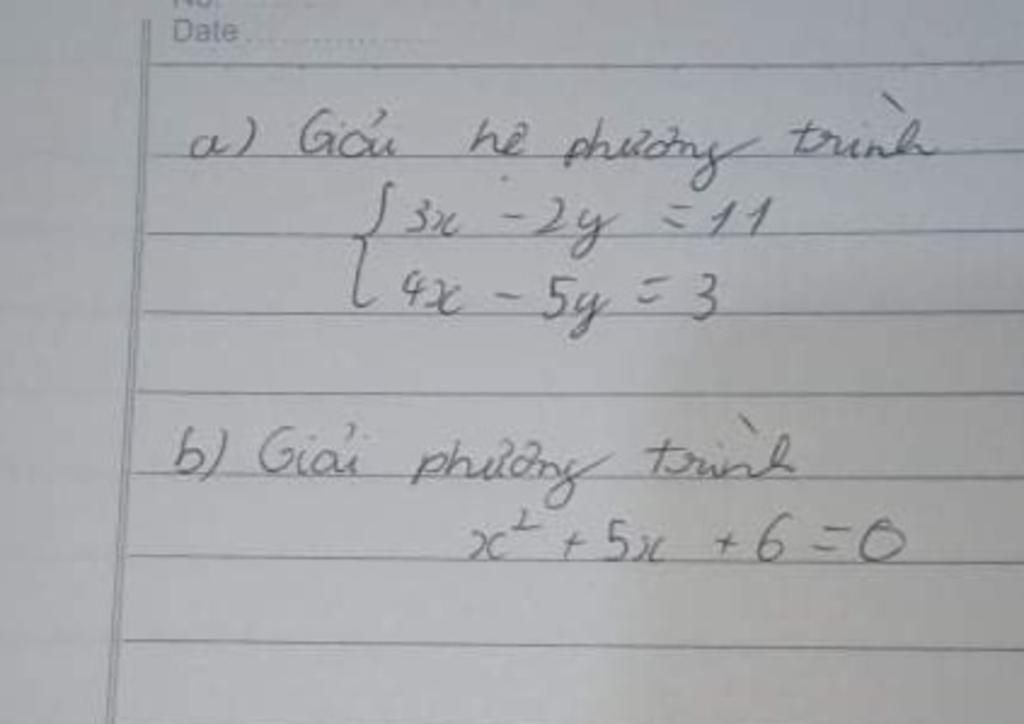 No.
Date
a) Giải hệ phương trình
{3x - 2y = 11
4x - 5y = 3
b) Giải phương trình
x² + 5x + 6 = 0